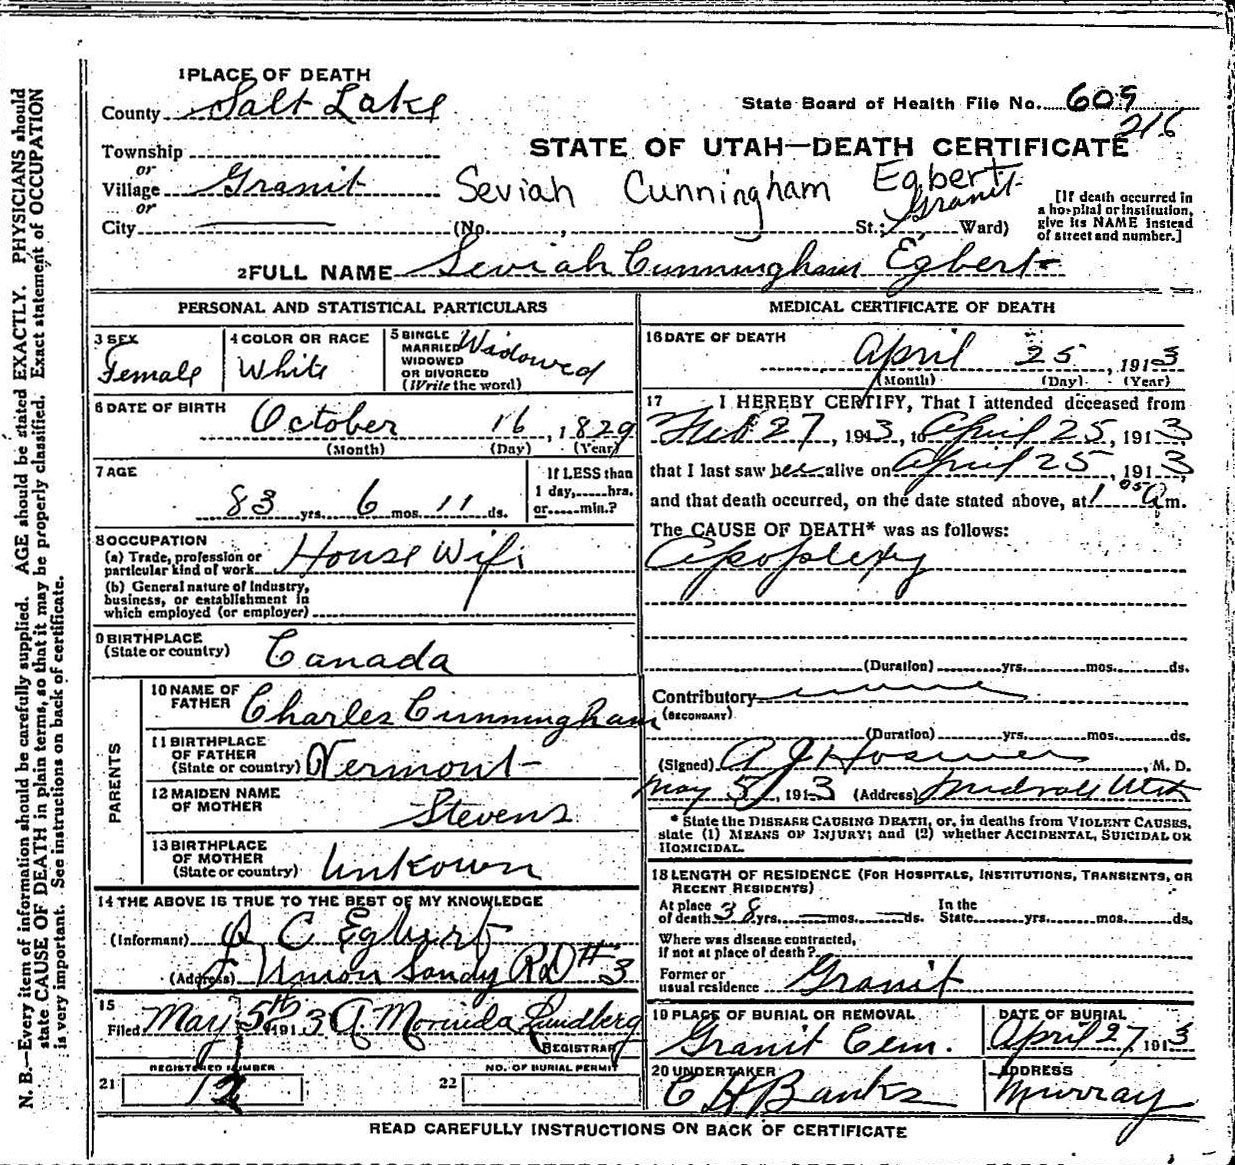 1 PLACE OF DEATH
County Salt Lake
State Board of Health File No. 609
216
Township
STATE OF UTAH—DEATH CERTIFICATE
or
Village Granit
Seviah Cunningham Egbert
or
City (No. , St.; Granit Ward)
[If death occurred in a hospital or institution, give its NAME instead of street and number.]
2 FULL NAME Seviah Cunningham Egbert
PERSONAL AND STATISTICAL PARTICULARS
3 SEX
Female
4 COLOR OR RACE
White
5 SINGLE
MARRIED
WIDOWED
OR DIVORCED
(Write the word)
Widowed
6 DATE OF BIRTH
October 16, 1829
(Month) (Day) (Year)
7 AGE
83 yrs. 6 mos. 11 ds.
If LESS than
1 day,......hrs.
or......min.?
8 OCCUPATION
(a) Trade, profession or
particular kind of work House Wife
(b) General nature of Industry,
business, or establishment in
which employed (or employer)
9 BIRTHPLACE
(State or country) Canada
PARENTS
10 NAME OF
FATHER Charles Cunningham
11 BIRTHPLACE
OF FATHER
(State or country) Vermont
12 MAIDEN NAME
OF MOTHER Stevens
13 BIRTHPLACE
OF MOTHER
(State or country) Unkown
14 THE ABOVE IS TRUE TO THE BEST OF MY KNOWLEDGE
(Informant) C Egbert
(Address) Union Sandy RD #3
15
Filed May 5th 1913 Lundberg
REGISTRAR
REGISTERED NUMBER
21 12
NO. OF BURIAL PERMIT
22
MEDICAL CERTIFICATE OF DEATH
16 DATE OF DEATH
April 25, 1913
(Month) (Day) (Year)
17 I HEREBY CERTIFY, That I attended deceased from
Feb 27, 1913, to April 25, 1913
that I last saw her alive on April 25, 1913,
and that death occurred, on the date stated above, at 1 05 A m.
The CAUSE OF DEATH* was as follows:
Apoplexy
(Duration) yrs. mos. ds.
Contributory
(SECONDARY)
(Duration) yrs. mos. ds.
(Signed) A J Hosmer, M. D.
May 5, 1913 (Address) Midvale Utah
* State the DISEASE CAUSING DEATH, or, in deaths from VIOLENT CAUSES,
state (1) MEANS OF INJURY; and (2) whether ACCIDENTAL, SUICIDAL OR
HOMICIDAL.
18 LENGTH OF RESIDENCE (FOR HOSPITALS, INSTITUTIONS, TRANSIENTS, OR
RECENT RESIDENTS)
At place
of death 38 yrs. — mos. — ds.
In the
State yrs. mos. ds.
Where was disease contracted,
if not at place of death?
Former or
usual residence Granit
19 PLACE OF BURIAL OR REMOVAL
Granit Cem.
DATE OF BURIAL
April 27, 1913
20 UNDERTAKER
C H Banks
ADDRESS
Murray
READ CAREFULLY INSTRUCTIONS ON BACK OF CERTIFICATE
N. B.—Every item of information should be carefully supplied. AGE should be stated EXACTLY. PHYSICIANS should
state CAUSE OF DEATH in plain terms, so that it may be properly classified. Exact statement of OCCUPATION
is very important. See instructions on back of certificate.